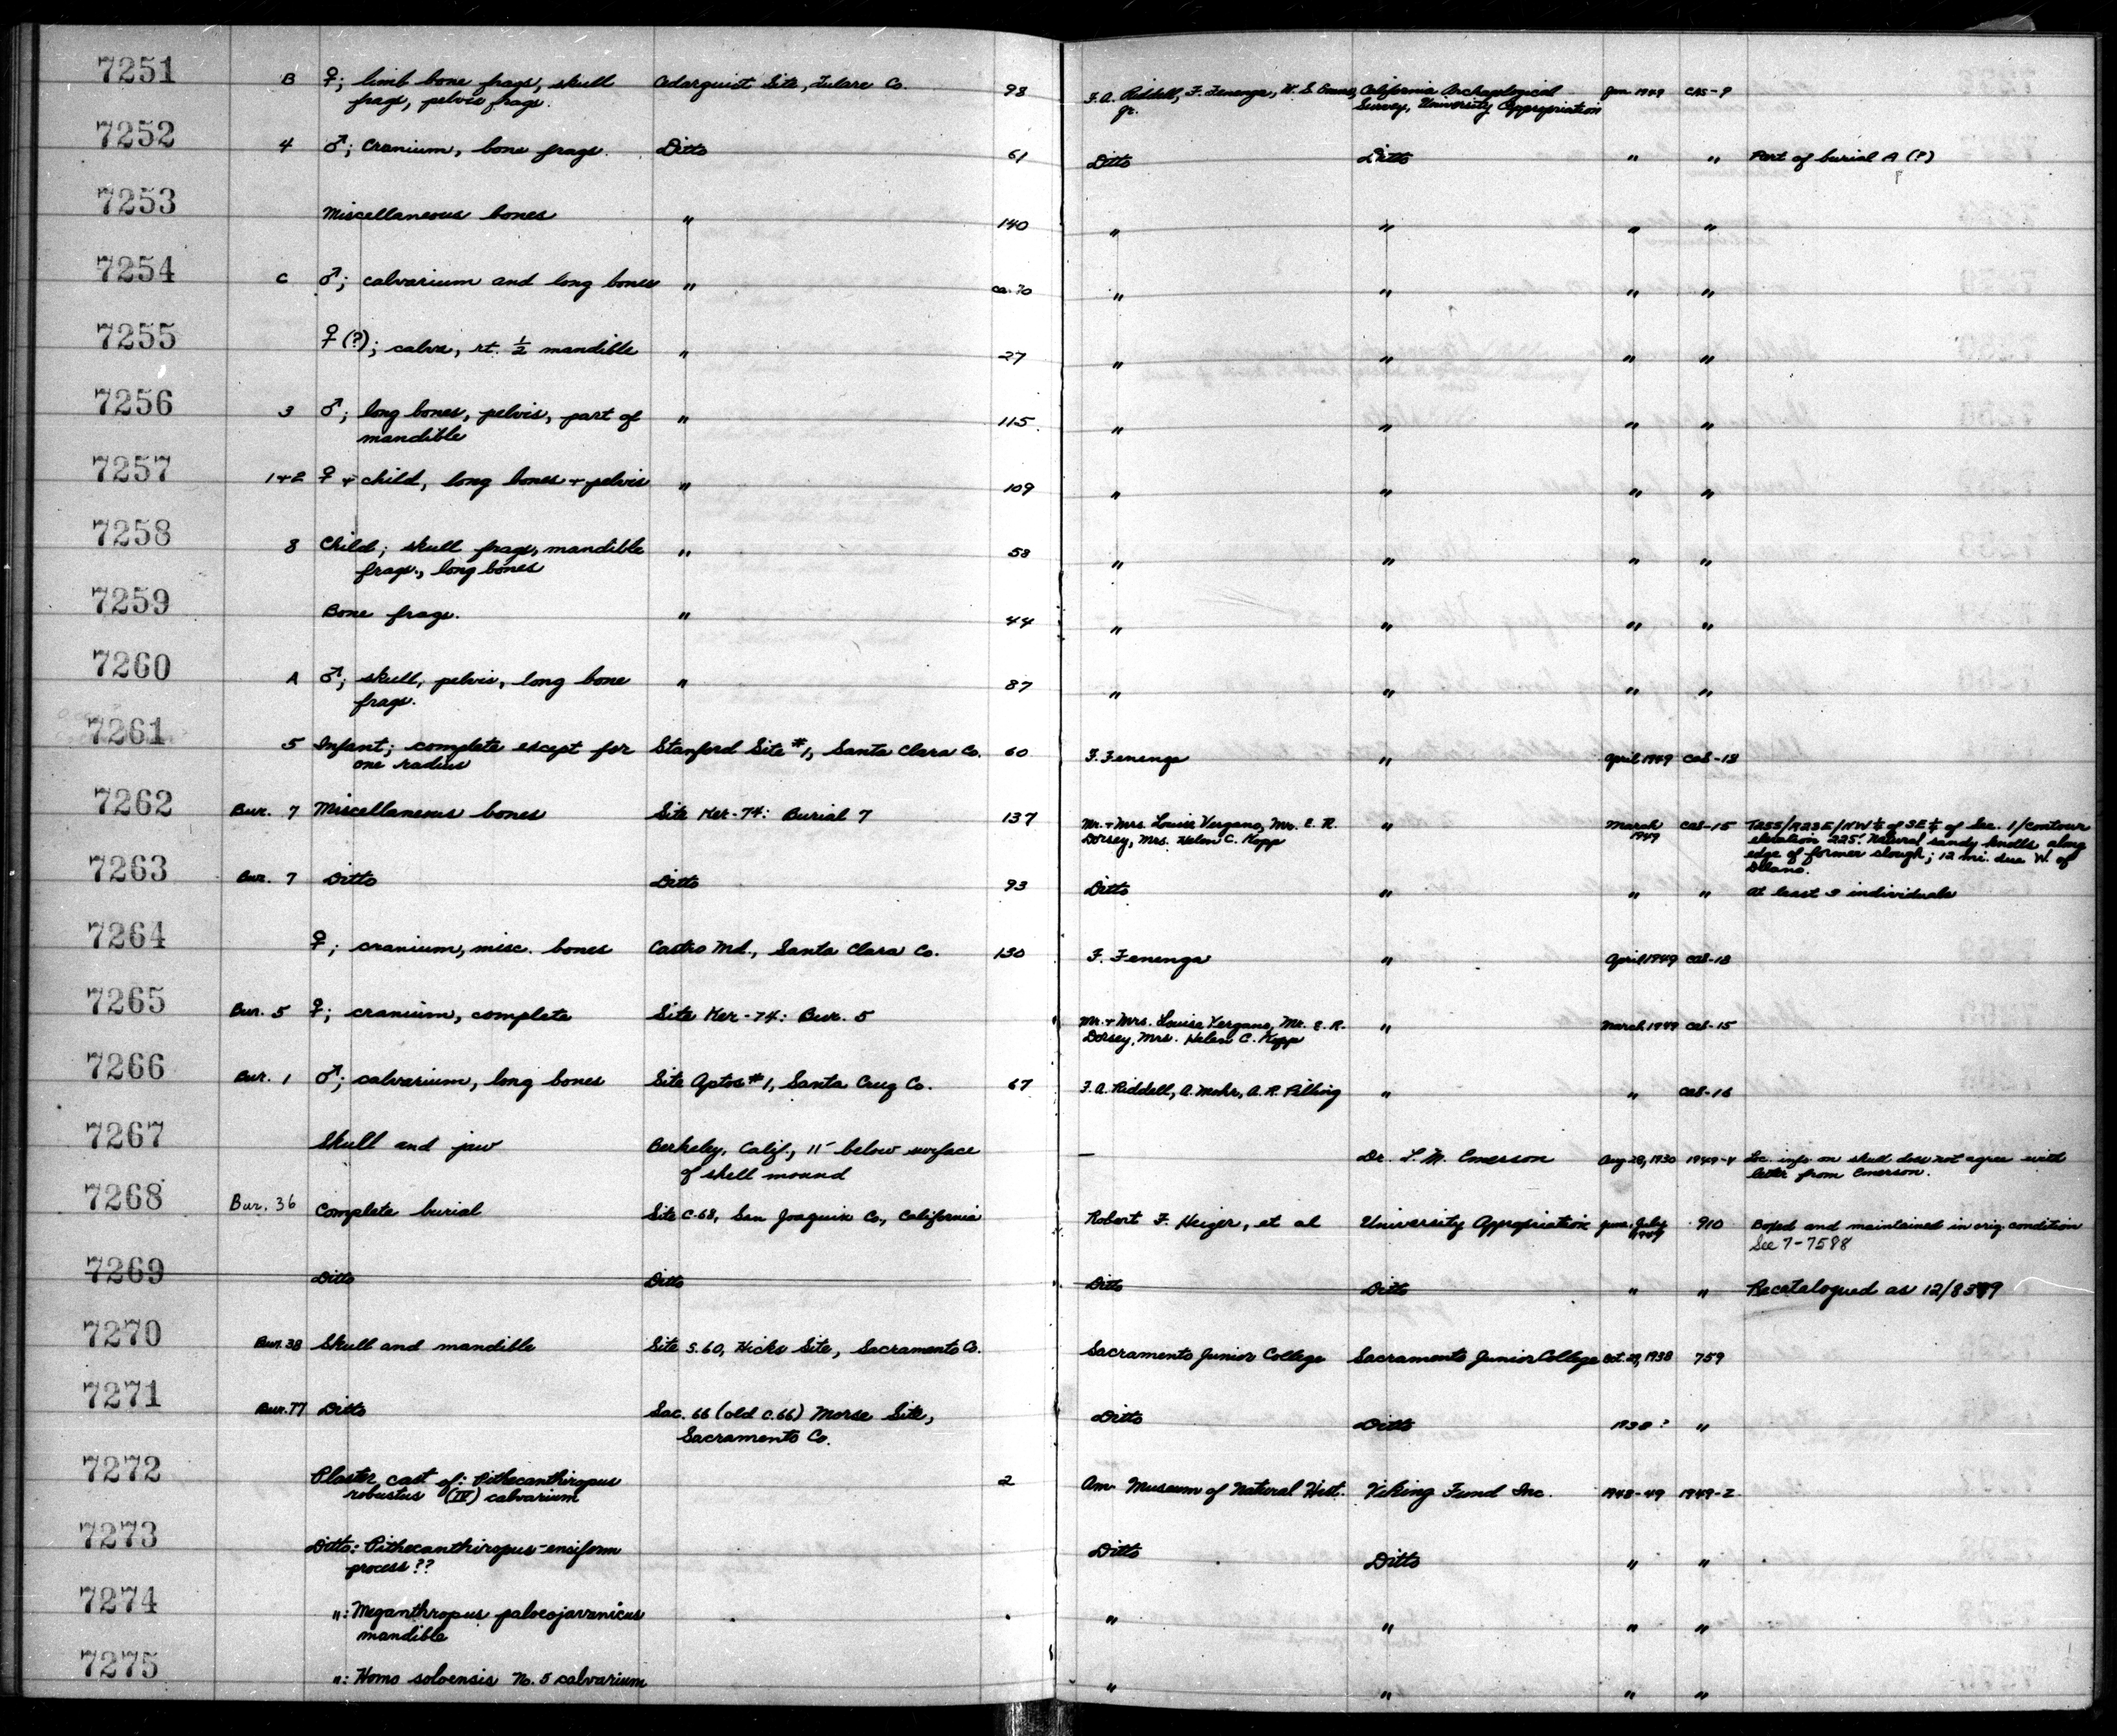 7251 B ♀; limb bone frags, skull Cedarquist Site, Tulare Co. 98 F. A. Riddell, F. Fenenga, W. S. Evans, California Archaeological Jan. 1949 CAS-9
frags, pelvis frags. Jr. Survey, University Appropriation
7252 4 ♂; Cranium, bone frags. Ditto 61 Ditto Ditto " " Part of burial A (?)
7253 Miscellaneous bones " 140 " " " "
7254 C ♂; calvarium and long bones " ca. 70 " " " "
7255 ♀ (?); calva, rt. ½ mandible " 27 " " " "
7256 3 ♂; long bones, pelvis, part of " 115 " " " "
mandible
7257 1+2 ♀ + child, long bones + pelvis " 109 " " " "
7258 8 Child; skull frags, mandible " 58 " " " "
frags., long bones
7259 Bone frags. " 44 " " " "
7260 A ♂; skull, pelvis, long bone " 87 " " " "
frags.
7261 5 Infant; complete except for Stanford Site #1, Santa Clara Co. 60 F. Fenenga " April 1949 CAS-18
one radius
7262 Bur. 7 Miscellaneous bones Site Ker-74: Burial 7 137 Mr. + Mrs. Louise Vergano, Mr. E. R. " March CAS-15 T25S/R23E/NW¼ of SE¼ of Sec. 1/contour
Dorsey, Mrs. Helen C. Kopp 1949 elevation 225'. Natural sandy knolls along
edge of former slough; 12 mi. due W. of
Delano.
7263 Bur. 7 Ditto Ditto 93 Ditto " " " At least 3 individuals
7264 ♀; cranium, misc. bones Castro Md., Santa Clara Co. 130 F. Fenenga " April 1949 CAS-18
7265 Bur. 5 ♀; cranium, complete Site Ker-74: Bur. 5 Mr. + Mrs. Louise Vergano, Mr. E. R. " March 1949 CAS-15
Dorsey, Mrs. Helen C. Kopp
7266 Bur. 1 ♂; calvarium, long bones Site Aptos #1, Santa Cruz Co. 67 F. A. Riddell, A. Mohr, A. R. Pilling " " CAS-16
7267 Skull and jaw Berkeley, Calif., 11' below surface — Dr. L. M. Emerson Aug 28, 1930 1949-4 Loc. info on skull does not agree with
of shell mound letter from Emerson.
7268 Bur. 36 Complete burial Site C.68, San Joaquin Co., California Robert F. Heizer, et al University Appropriation June-July 910 Boxed and maintained in orig. condition
See 7-7588
7269 Ditto Ditto Ditto Ditto " " Recatalogued as
7270 Bur. 38 Skull and mandible Site S.60, Hicks Site, Sacramento Co. Sacramento Junior College Sacramento Junior College Oct. 29, 1938 759
7271 Bur. 77 Ditto Sac. 66 (old C.66) Morse Site, Ditto Ditto 1938? "
Sacramento Co.
7272 Plaster cast of: Pithecanthropus 2 Am. Museum of Natural Hist. Viking Fund Inc. 1948-49 1949-2
robustus (IV) calvarium
7273 Ditto: Pithecanthropus-ensiform Ditto Ditto " "
process??
7274 ": Meganthropus paleojavanicus " " " "
mandible
7275 ": Homo soloensis No. 5 calvarium " " " "